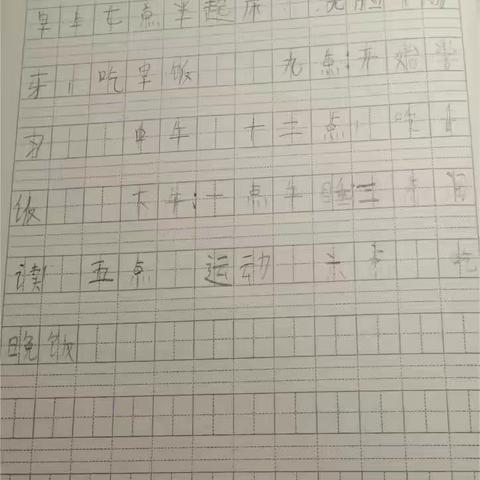 早上七点半起床 洗脸 刷
牙 吃早饭 九点:开始学
习 中午 十二点 吃午
饭 下午:一点午睡三点阅
读 五点 运动 六点 吃
晚饭